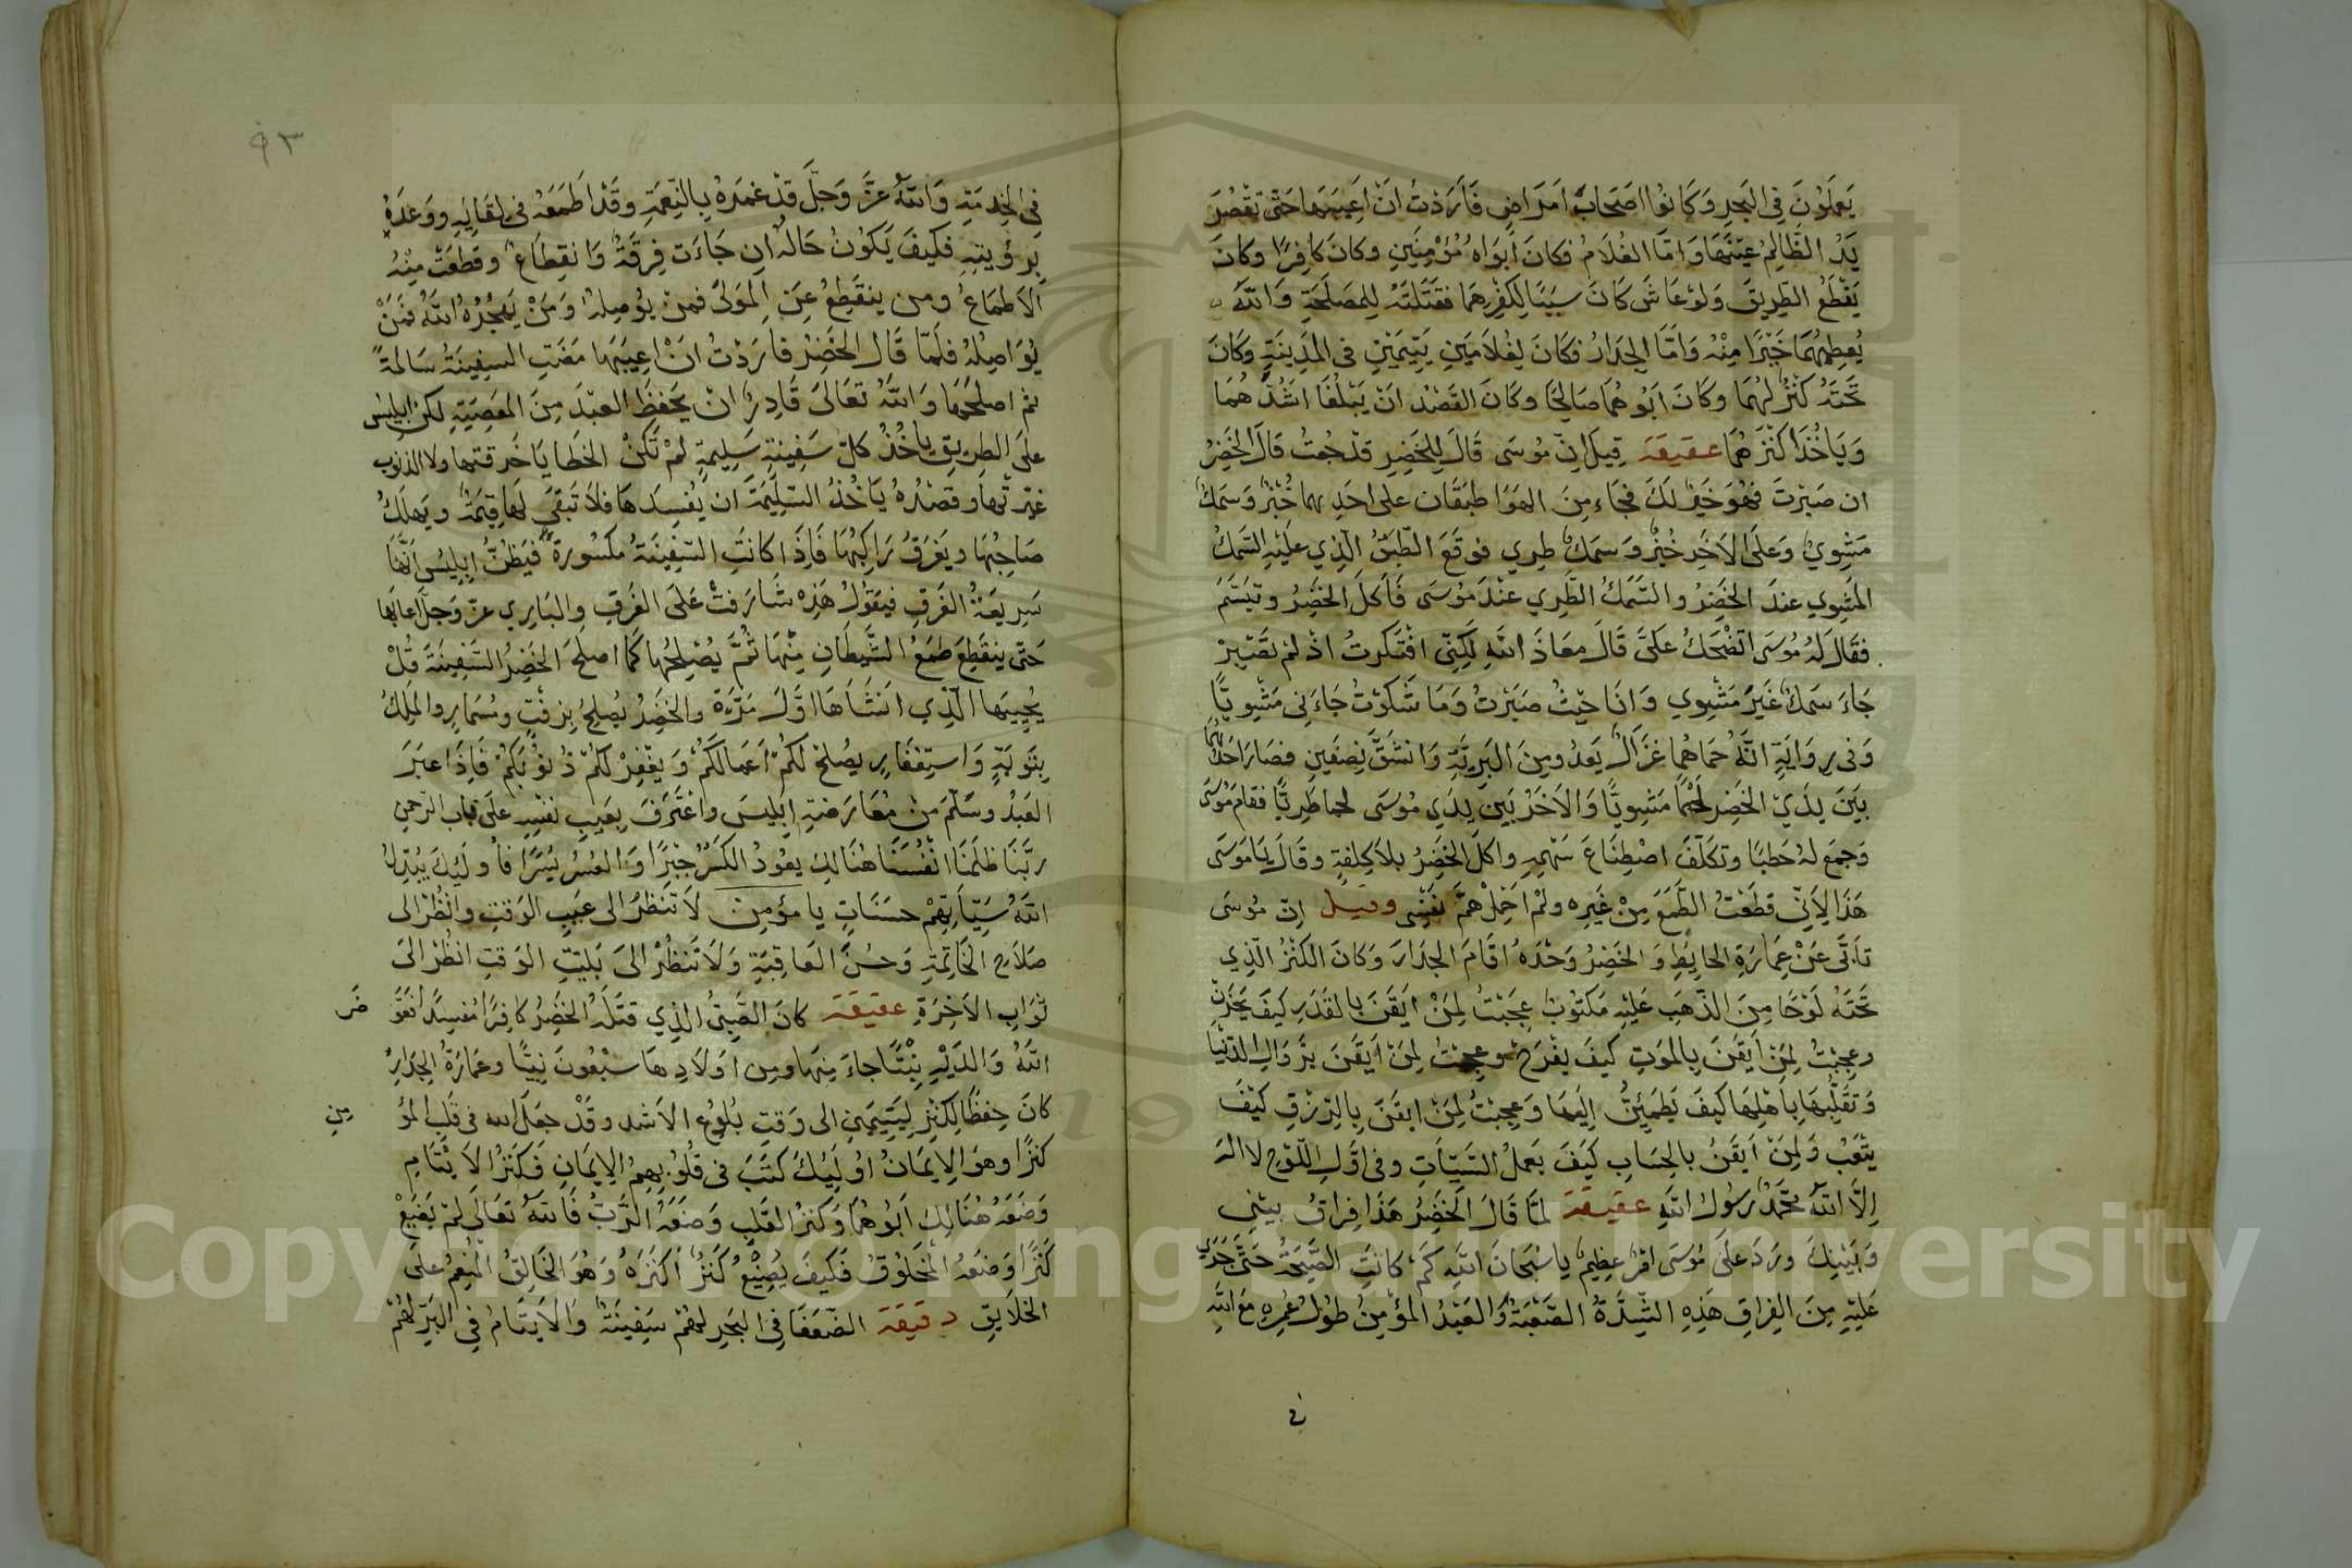 يَعمَلُونَ فِي البَحرِ وَكَانُوا اصَحَابَ امَرَاضٍ فَأَرَدْتُ انَ اَعِيبَهَا حَتّى تقْصُرَ
يَدُ الظَّالِمُ عَنْهَا وَامّا الغُلَامُ فكانَ اَبوَاهُ مُؤْمِنَينِ وكانَ كافِرًا وكانَ
يَقْطَعُ الطّرِيقَ وَلوْ عَاشَ كانَ سَبَبًا لِكُفْرِهِمَا فقَتَلتَهُ لِلمَصلَحَةِ وَاللّه
يُعطِيهُمَا خَيْرًا مِنْهُ وَامَّا الجِدَارُ فكَانَ لِغُلَامَينِ يَتِيمَيْنِ فى المَدِينَةِ وَكانَ
تَحَتهُ كَنْزٌ لهُمَا وكانَ ابُوهُمَا صَالِحًا وكانَ القَصْد انَ يَبْلُغَا اشُدَّهُمَا
وَيَاخُذَا كَنْزَهُمَا عقيقة قِيلَ انّ مُوسَى قَالَ لِلخَضِرِ قدْ جُعتُ قَالَ الخَضِرُ
ان صَبَرْتَ فهُوَ خَيرٌ لَكَ فجَاء مِنَ الهَوَا طبَقَان على احَدِهما خُبْزٌ وَسَمَكٌ
مَشِويٌ وَعَلَى الاَخَرِ خُبزٌ وَسمَكٌ طرِي فوقَعَ الطّبَقُ الّذِي عَلَيْهِ السَّمَكُ
المَشِوي عندَ الخَضِرُ والسَّمَكُ الطَّرِي عنْدَ مُوسَى فَأكلَ الخَضِرُ وتبَسَّمَ
فقَالَ لَهُ مُوسَى اتَضْحَكُ عَلىَّ قَالَ معَاذَ اللهِ لَكِنّى افْتَكرتُ اذْ لمْ تصَبِرْ
جَاءَ سَمَكٌ غَيرَ مَشِوي وَانَا حيْثُ صَبَرْتُ وَمَا شَكوْتُ جَاءَنِى مَشِويًّا
وَفى رِوَايَةٍ انّهُ حمَاهُما غزَالٌ يَعدُو مِنَ البَرِيَّةِ وَانشَقَّ نِصفَينِ فصَارَ احَدُهُمَا
بيَنَ يدَيْ الخَضِرِ لَحمًا مَشِويًّا وَالاَخَرُ بَينِ يدَي مُوسَى لحما طَرِيًّا فقامَ مُوسَى
وَجمَعَ لهُ حَطبًا وتكَلّفَ اصْطِنَاعَ سَهْمِهِ واكلَ الخَضِرُ بلاَ كِلفةٍ وقَالَ يَا مُوسَى
هَذَا لِأنّى قطَعْتُ الطَّمَعَ مِنْ غَيرِه ولَمْ احْمِلْ همَّ نفَسِى وقيل انّ مُوسَى
تأبَّى عَنْ عِمَارَةِ الحايِطِ وَالخَضِرُ وَحْدَهُ اقَامَ الجِدَارَ وَكانَ الكَنْزُ الّذِي
تَحَتهُ لَوْحًا مِنَ الذّهَبِ عَلَيْهِ مَكتُوبٌ عَجِبْتُ لِمَنْ ايَقَنَ بالقَدَرِ كيفَ يَحْزَنُ
وعجِبْتُ لِمَنْ اَيقَنَ بِالمَوتِ كيفَ يفْرَحُ وعجِبْتُ لِمَنْ اَيقَنَ بزَوَالِ الدّنْيَا
وَتَقَلُّبِهَا بِاَهْلِهَا كيَفَ يَطمَئِنُّ اِلَيهَا وَعجِبْتُ لِمَنْ ايقَنَ بِالرّزْقِ كيْفَ
يتْعَبْ وَلِمَنْ اَيقَنُ بالحِسَابِ كيَفَ يَعمَلُ السَّيّئَاتِ وفى اوَّلِ اللّوْحِ لا اله
اِلّا اللهُ مُحَمَّدٌ رَسُولُ اللهِ عقيقة لمَّا قَالَ الخَضِرُ هَذَا فِراقُ بيْنِي
وَبَيْنِكَ ورَدَ عَلَى مُوسَى امْرٌ عظِيمٌ يا سُبْحَانَ اللهِ كَمْ كانَتِ الصُّحْبَةُ حَتّى جَرَى
عَلَيْهِ مِنَ الفِراقِ هَذِهِ الشِّدَّةُ الصَّعْبَةُ وَالعَبْدُ المؤْمِنُ طُولُ عُمرِهِ مَعَ اللهِ
فى
٩٣
فِي الخِدمَةِ وَاللهُ عَزَّ وَجَلَّ قَدْ غمَرَهُ بِالنِّعمَةِ وقَدْ اَطمَعَهُ فى لِقَايِهِ ووَعَدَهُ
بِرؤيتِهِ فكيفَ يَكوُنُ حَالهُ ان جَاءَت فِرقَةٌ وَانقِطَاعٌ وقطعَتْ مِنْهُ
الاَطمَاعُ ومن ينقَطِعُ عَنِ المَولىَ فمَنْ يوُصِلهُ وَمَنْ يَهجُرُهُ اللهُ فمَنْ
يُوَاصِلُهُ فلَمّا قَالَ الخَضِرُ فأرَدْتُ انَ اعِيبَهَا مَضَتِ السفِينَةُ سَالمَةً
ثم اصلَحَهَا وَاللهُ تعَالىَ قَادِرٌ انْ يَحفظَ العَبْدَ مِنَ المَعصِيَةِ لكن ابليس
علىَ الطرِيقِ يأخُذُ كلّ سَفِينةٍ سَلِيمَةٍ لَمْ تَكنْ الخَطايَا خَرقتهَا ولا الذنوب
غيّرتْهَا وقصْدُهُ يَاخُذُ السَّلِيمَةَ ان يُفسِدَهَا فلاَ تَبقَى لهَا قِيمَةٌ ويَهلَكُ
صَاحِبُهَا ويغَرقُ رَاكِبُهَا فَاِذَا كانَتِ السَّفِينَةُ مكسُورةً فيَظُنُّ ابلِيسُ اَنَّهَا
سَرِيعَةُ الغَرقِ فيَقوُلُ هَذِه شَارَفتْ عَلىَ الغَرقِ والبَارِي عزّ وَجلّ اعابَها
حَتّى ينقَطِعَ طمَعُ الشَّيطَانِ مِنْهَا ثُمَّ يُصْلِحُهَا كمَا اصلَحَ الخَضِرُ السَّفِينَةَ قُلْ
يُحْيِيهَا الّذِي انشَأهَا اوَّلَ مَرَّةٍ والخَضِرُ يُصلِحُ بِزفْتٍ ومُسمَارٍ والمَلِكُ
بِتَوبَةٍ وَاستِغفَارٍ يصُلحْ لَكُمْ اَعمَالَكُمْ وَيغْفِرْ لَكُمْ ذُنوُبَكُمْ فَاِذَا عبَرَ
العَبْدُ وسَلّمَ مِنْ مُعَارَضَةِ اِبلِيسَ واعْتَرَفَ بِعَيبِ نفْسِهِ عَلىَ باب الرّحمن
ربَّنَا ظلَمنَا انْفُسَنَا هُنَالكِ يعوُدُ الكَسْرُ جَبْرًا وَالعُسْرُ يُسْرًا فأولَئِكَ يُبَدِّلُ
اللهُ سَيّاَتِهِمْ حسَنَاتٍ يا مؤمِن لاَ تَنظُرْ الى عَيبِ الوَقتِ وانْظُرْ الى
صَلاَحِ الخَاتِمَةِ وَحُسْنِ العَاقِبَةِ وَلاَ تَنظُرْ الىَ بَليّتِ الوَقتِ انظُرْ الىَ
ثوَابِ الاَخِرَةِ عقيقة كانَ الصَّبِيُّ الّذِي قتَلَهُ الخَضِرُ كافِرًا مُفسِدًا فَعَوَّ ضَر
اللهُ وَالدَيْهِ بِنْتًا جاءَ مِنهَا ومِن اوْلاَدِهَا سَبْعُونَ نَبِيًّا وعمَارَةُ الجِدَارِ
كانَ حِفظًا لِكَنْزِ ليَتِيمَينِ الى وَقتِ بُلوُغِ الاَشد وقَدْ جعَلَ الله فى قَلبِ المؤ مِنِ
كنزًا وهوَ الاِيمَانُ اوُلَئِكَ كتَبَ فى قُلوُبِهِمُ الاِيمَانِ فَكَنزُ الاَيْتَامِ
وَضَعَهُ هُنَالِكِ اَبوُهُمَا وَكنزُ القَلبِ وَضَعَهُ الرَّبُّ فَاللهُ تعَالَى لمْ يَضَيِّعْ
كَنزًا وَضعَهُ المَخلُوقُ فكَيفَ يُضِيّعُ كَنزٌ اَكنَزَهُ وَهُوَ الخَالِقُ المُنعِمُ علىَ
الخَلاَيقِ دقيقة الضّعَفَا فِى البَحرِ لهُمْ سَفِينَةٌ وَالاَيتَامُ فِى البَرّ لهُمْ